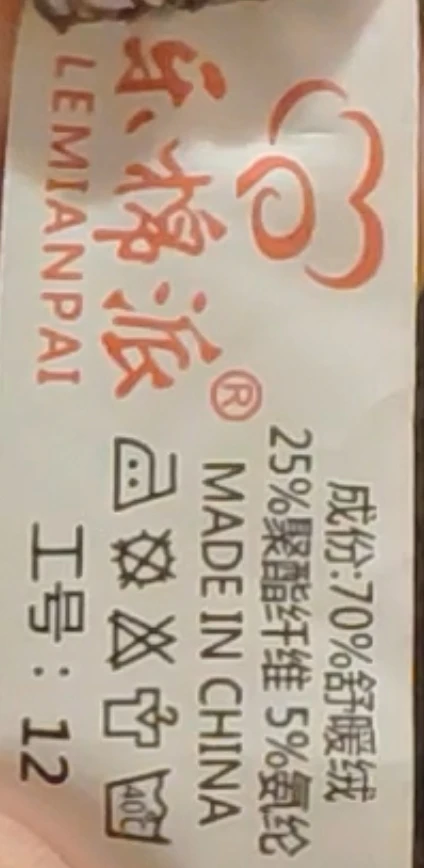 乐棉派®
LEMIANPAI
成份:70%舒暖绒
25%聚酯纤维 5%氨纶
MADE IN CHINA
40℃
工号：12